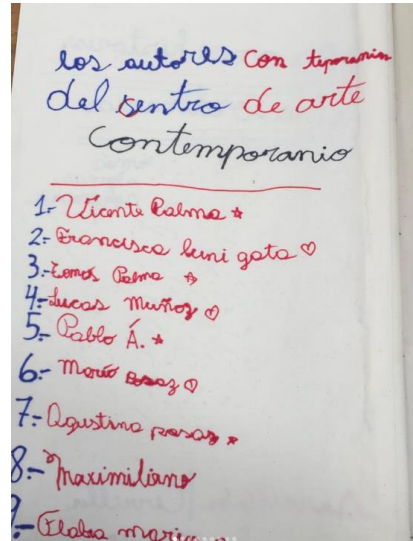 los autores con teporanin
del sentro de arte
Contemporanio
1.- Vicente Palma
2.- Francisca luni gata
3.- Tomás Palma
4.- Lucas Muñoz
5.- Pablo Á.
6.- Mario
7.- Agustina posaz
8.- Maximiliano
9.-